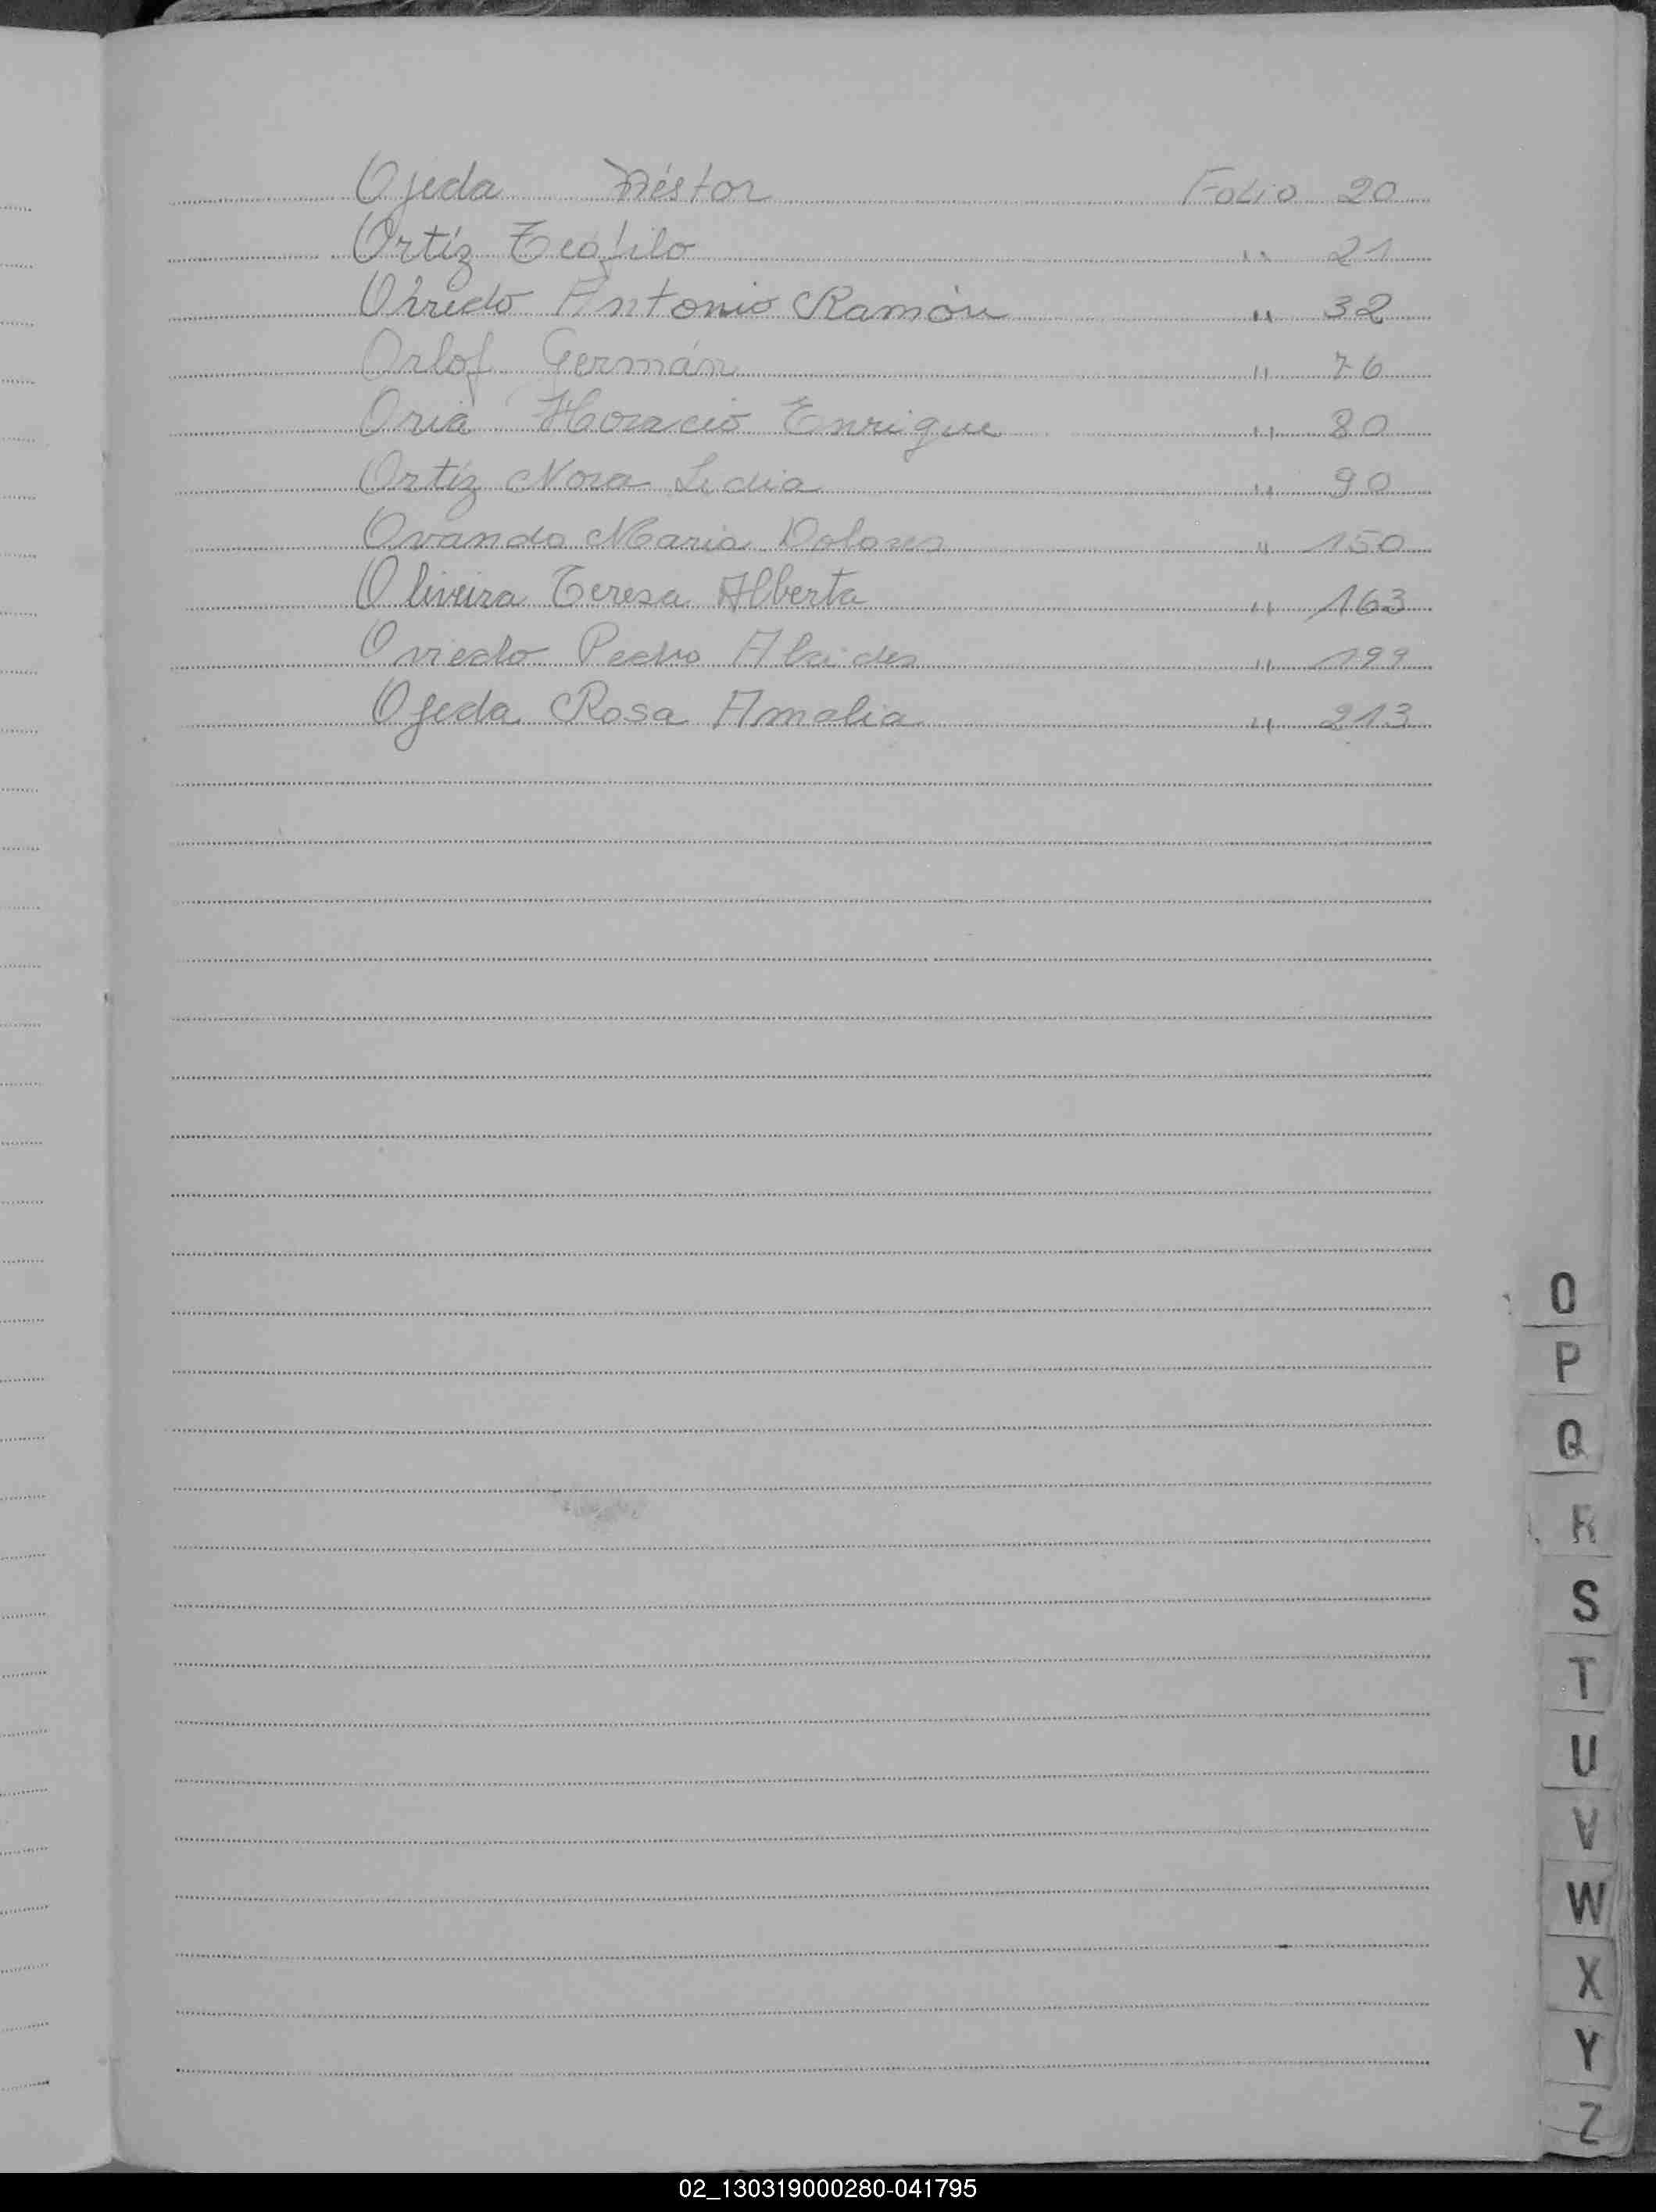 Ojeda Néstor Folio 20
Ortíz Teófilo " 21
Oviedo Antonio Ramón " 32
Orlof Germán " 76
Oria Horacio Enrique " 80
Ortíz Nora Lidia " 90
Ovando Maria Dolores " 150
Oliveira Teresa Alberta " 163
Oviedo Pedro Alcides " 199
Ojeda Rosa Amalia " 213
O
P
Q
R
S
T
U
V
W
X
Y
Z
02_130319000280-041795